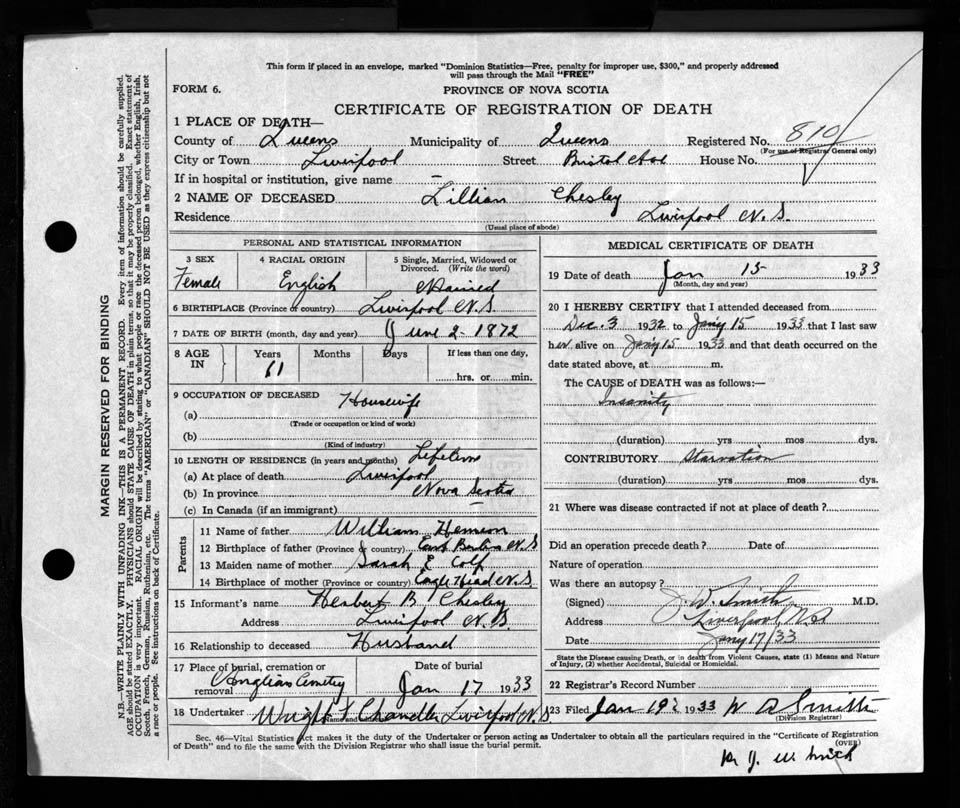 This form if placed in an envelope, marked "Dominion Statistics—Free, penalty for improper use, $300," and properly addressed
will pass through the Mail "FREE"
FORM 6.
PROVINCE OF NOVA SCOTIA
CERTIFICATE OF REGISTRATION OF DEATH
1 PLACE OF DEATH—
County of Queens Municipality of Queens Registered No. 810
(For use of Registrar General only)
City or Town Liverpool Street Bristol House No.
If in hospital or institution, give name –
2 NAME OF DECEASED Lillian Chesley
Residence Liverpool N.S.
(Usual place of abode)
PERSONAL AND STATISTICAL INFORMATION
3 SEX 4 RACIAL ORIGIN 5 Single, Married, Widowed or Divorced. (Write the word)
Female English Married
6 BIRTHPLACE (Province or country) Liverpool N.S.
7 DATE OF BIRTH (month, day and year) June 2 - 1872
8 AGE IN Years Months Days If less than one day,
61 hrs. or min.
9 OCCUPATION OF DECEASED Housewife
(a)
(Trade or occupation or kind of work)
(b)
(Kind of industry)
10 LENGTH OF RESIDENCE (in years and months) Lifetime
(a) At place of death Liverpool
(b) In province Nova Scotia
(c) In Canada (if an immigrant)
Parents
11 Name of father William
12 Birthplace of father (Province or country) East Berlin N.S
13 Maiden name of mother Sarah E Colp
14 Birthplace of mother (Province or country) Eagle Head N.S.
15 Informant's name Herbert B Chesley
Address Liverpool N.S
16 Relationship to deceased Husband
17 Place of burial, cremation or removal Anglian Cemetry
Date of burial Jan 17 1933
18 Undertaker Wright & Chandler Liverpool N.S.
(Name and address)
MEDICAL CERTIFICATE OF DEATH
19 Date of death Jan 15 1933
(Month, day and year)
20 I HEREBY CERTIFY that I attended deceased from
Dec. 3 1932 to Jany 15 1933 that I last saw
her alive on Jany 15 1933 and that death occurred on the
date stated above, at m.
The CAUSE of DEATH was as follows:—
Insanity
(duration) yrs mos dys.
CONTRIBUTORY Starvation
(duration) yrs mos dys.
21 Where was disease contracted if not at place of death?
Did an operation precede death? Date of
Nature of operation
Was there an autopsy?
(Signed) J. W. Smith M.D.
Address Liverpool, N.S
Date Jany 17/33
State the Disease causing Death, or in death from Violent Causes, state (1) Means and Nature
of Injury, (2) whether Accidental, Suicidal or Homicidal.
22 Registrar's Record Number
23 Filed Jan 19 1933 W A Smith
(Division Registrar)
Sec. 46—Vital Statistics Act makes it the duty of the Undertaker or person acting as Undertaker to obtain all the particulars required in the "Certificate of Registration
of Death" and to file the same with the Division Registrar who shall issue the burial permit.
(OVER)
J. W. Smith
MARGIN RESERVED FOR BINDING
N.B.—WRITE PLAINLY WITH UNFADING INK—THIS IS A PERMANENT RECORD. Every item of information should be carefully supplied.
AGE should be stated EXACTLY. PHYSICIANS should STATE CAUSE OF DEATH in plain terms, so that it may be properly classified. Exact statement of
OCCUPATION is very important. RACIAL ORIGIN will be described by stating to what people or race the deceased person belonged, whether English, Irish,
Scotch, French, German, Russian, Ruthenian, etc. The terms "AMERICAN" or "CANADIAN" SHOULD NOT BE USED as they express citizenship but not
a race or people. See instructions on back of Certificate.